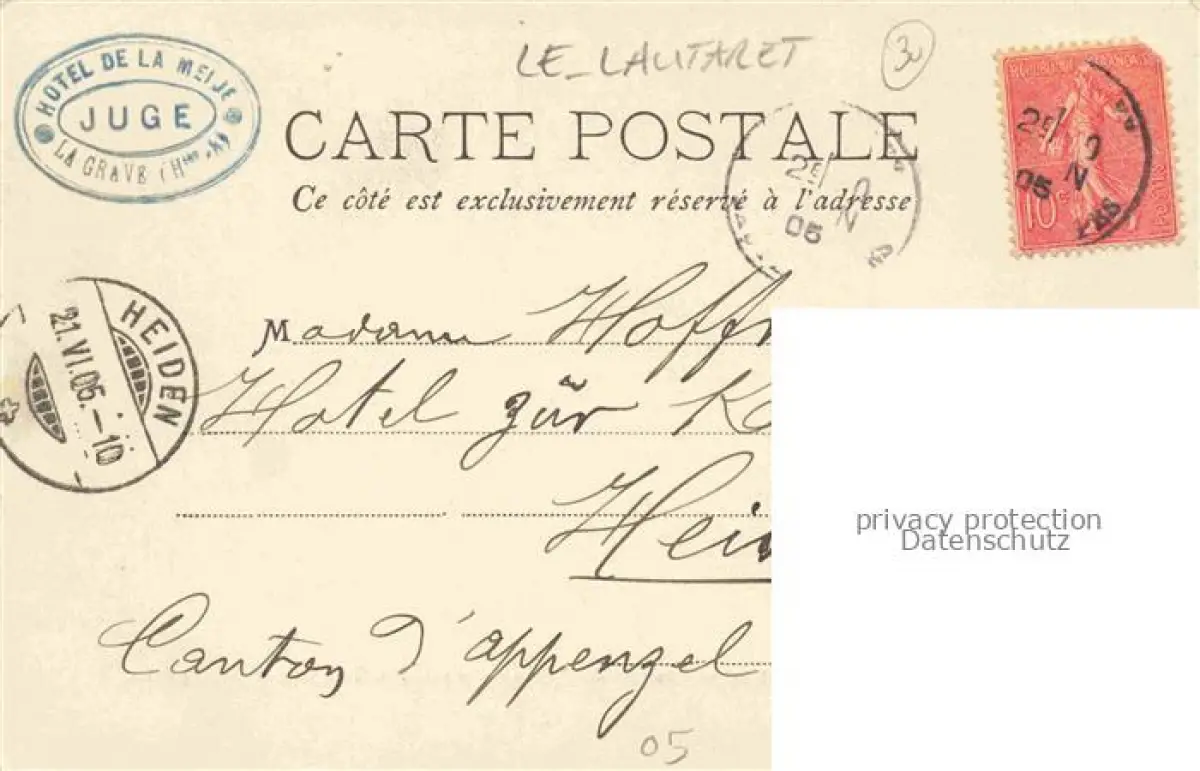 HOTEL DE LA MEIJE
JUGE
LA GRAVE (Htes-A)
LE_LAUTARET
30
CARTE POSTALE
Ce côté est exclusivement réservé à l'adresse
05
10
05
HEIDEN
21.VI.05.-10
Madame Hoff
Hotel zür K
Hei
Canton d'appenzel
05
privacy protection
Datenschutz